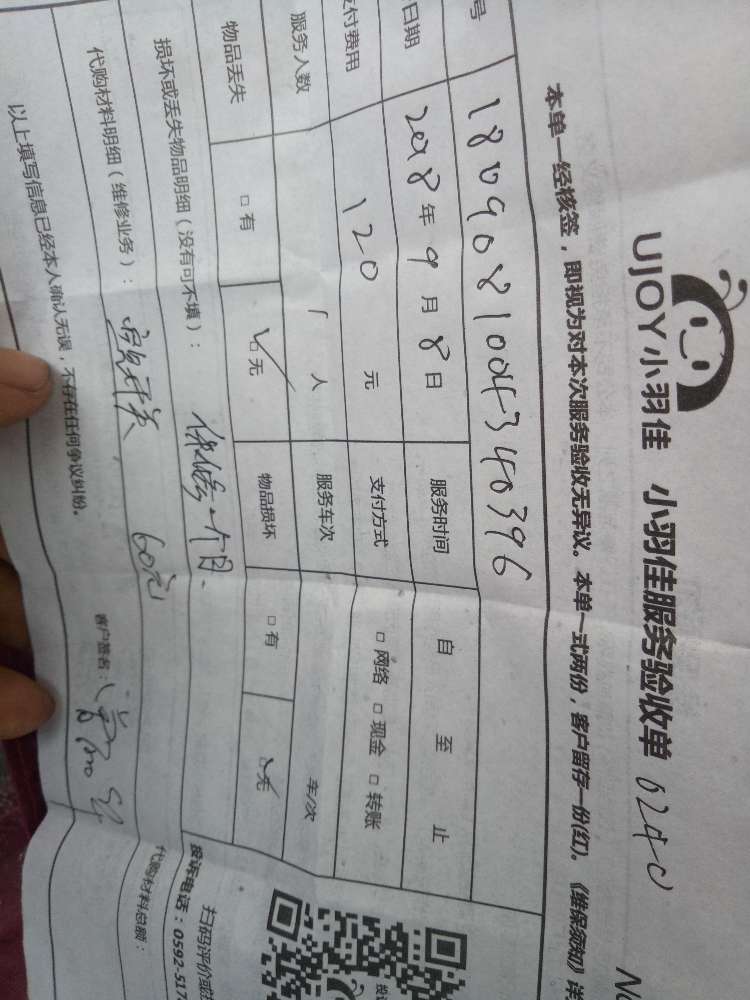 UJOY小羽佳 小羽佳服务验收单 6240
No
本单一经核签，即视为对本次服务验收无异议。本单一式两份，客户留存一份(红)。《维保须知》详
号 18090810043403 96
日期 2018年9月8日 服务时间 自 至 止
支付费用 120元 支付方式 □网络 □现金 □转账
服务人数 1人 服务车次 车/次
物品丢失 □有 □无 物品损坏 □有 □无
损坏或丢失物品明细（没有可不填）： 保修一个月.
代购材料明细（维修业务）： 开关, 60元
代购材料总额：
以上填写信息已经本人确认无误，不存在任何争议纠纷。
客户签名：
扫码评价或
投诉电话：0592-517